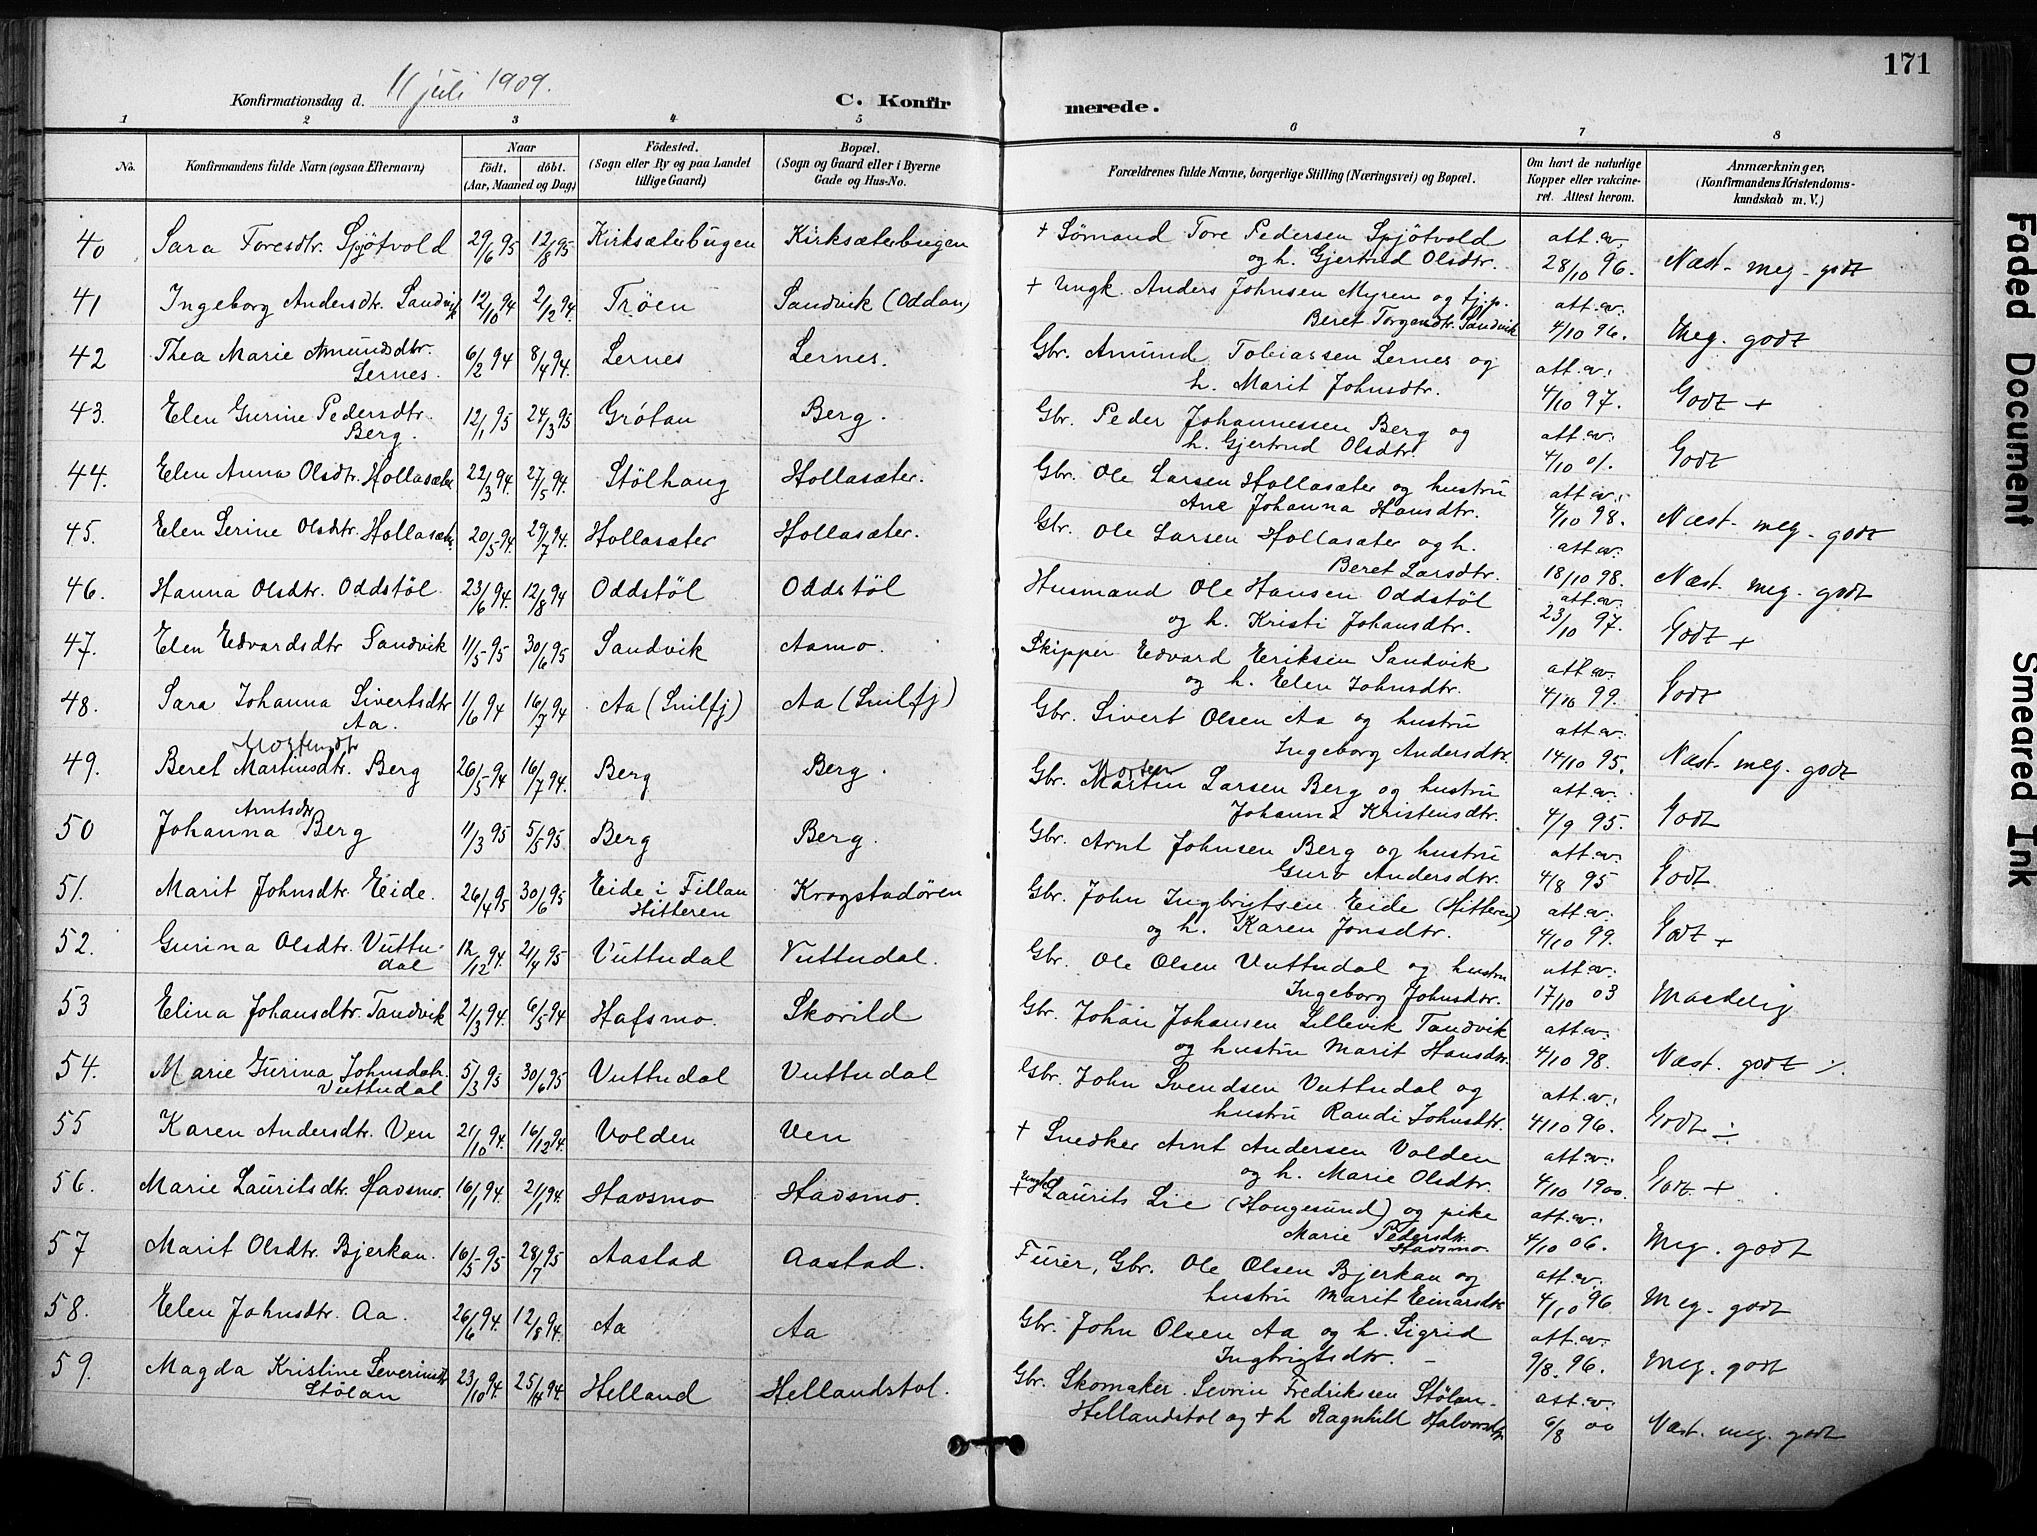 171
Konfirmationsdag d. 11 juli 1909.
C. Konfirmerede.
1 2 3 4 5 6 7 8
No.
Konfirmandens fulde Navn (ogsaa Efternavn)
Naar
födt. döbt.
(Aar, Maaned og Dag)
Födested.
(Sogn eller By og paa Landet
tillige Gaard)
Bopæl.
(Sogn og Gaard eller i Byerne
Gade og Hus-No.
Forældrenes fulde Navne, borgerlige Stilling (Næringsvei) og Bopæl.
Om havt de naturlige
Kopper eller vakcine-
ret. Attest herom.
Anmærkninger.
(Konfirmandens Kristendoms-
kundskab m. V.)
40 Sara Toresdtr. Spjøtvold 29/6 95 12/8 95 Kirksæterbugen Kirksæterbugen + Sømand Tore Pedersen Spjøtvold att. av.
og h. Gjertrud Olsdtr. 28/10 96. Næst. meg. godt
41 Ingeborg Andersdtr. Sandvik 12/10 94 2/12 94. Trøen Sandvik (Oddan) + Ungk. Anders Johnsen Myren og tjp. att. av.
Beret Torgersdtr. Sandvik 4/10 96. Meg. godt
42 Thea Marie Amundsdtr. 6/2 94 8/4 94. Lernes Lernes. Gbr. Amund Tobiassen Lernes og att. av.
Lernes. h. Marit Johnsdtr. 4/10 97. Godt +
43. Elen Gurine Pedersdtr. 12/1 95 24/3 95 Grótan Berg. Gbr. Peder Johannessen Berg og att. av.
Berg. h. Gjertrud Olsdtr. 4/10 01. Godt
44. Elen Anna Olsdtr. Hollasæter 22/3 94. 27/5 94. Stölhaug Hollasæter. Gbr. Ole Larsen Hollasæter og hustru att. av.
Ane Johanna Hansdtr. 4/10 98. Næst. meg. godt
45. Elen Serine Olsdtr. Hollasæter 20/5 94. 29/7 94. Hollasæter Hollasæter. Gbr. Ole Larsen Hollasæter og h. att. av.
Beret Larsdtr. 18/10 98. Næst. meg. godt
46. Hanna Olsdtr. Oddstöl 23/6 94. 12/8 94 Oddstöl Oddstöl Husmand Ole Hansen Oddstöl att. av.
og h. Kristi Johansdtr. 23/10 97. Godt +
47. Elen Edvardsdtr Sandvik 11/5 95 30/6 95 Sandvik Aamo. Skipper Edvard Eriksen Sandvik att. av.
og h. Elen Johnsdtr. 4/10 99. Godt
48. Sara Johanna Sivertsdtr 1/6 94 16/7 94 Aa (Snilfj) Aa (Snilfj) Gbr. Sivert Olsen Aa og hustru att. av.
Aa. Ingeborg Andersdtr. 14/10 95. Næst. meg. godt
Mortensdtr
49. Beret Martinsdtr. Berg 26/5 94 16/7 94. Berg Berg. Gbr. Morten Martin Larsen Berg og hustru att. av.
Johanna Kristensdtr. 4/9 95. Godt
Arntsdtr
50 Johanna Berg 11/3 95 5/5 95. Berg Berg. Gbr. Arnt Johnsen Berg og hustru att. av.
Guro Andersdtr. 4/8 95 Godt
51. Marit Johnsdtr. Eide. 26/4 95 30/6 95 Eide i Fillan Krogstadören Gbr. John Ingbrigtsen Eide (Hitteren) att. av.
Hitteren og h. Karen Jonsdtr. 4/10 99. Godt +
52. Gurina Olsdtr. Vuttu- 12/12 94. 21/4 95 Vuttudal Vuttudal. Gbr. Ole Olsen Vuttudal og hustru att. av.
dal Ingeborg Johnsdtr. 17/10 03 Maadelig
53 Elina Johansdtr. Tandvik 2/3 94. 6/5 94 Hafsmo. Skorild Gbr. Johan Johansen Lillevik Tandvik att. av.
og hustru Marit Hansdtr. 4/10 98. Næst. godt
54. Marie Gurina Johnsdatr. 5/3 95 30/6 95 Vuttudal Vuttudal Gbr. John Svendsen Vuttudal og att. av.
Vuttudal hustru Randi Johnsdtr. 4/10 96. Godt ÷
55 Karen Andersdtr. Ven 21/10 94. 16/12 94. Volden Ven + Snedker Arnt Andersen Volden att. av.
og h. Marie Olsdtr. 4/10 1900. Godt +
56. Marie Lauritsdtr. Havsmo. 16/1 94. 21/1 94. Havsmo Havsmo. + Ungk. Laurits Lie (Haugesund) og pike att. av.
Marie Pedersdtr. 4/10 06. Meg. godt
Havsmo
57 Marit Olsdtr. Bjerkan. 16/5 95 28/7 95 Aastad Aastad. Furer, Gbr. Ole Olsen Bjerkan og att. av.
hustru Marit Einarsdtr 4/10 96 Meg. godt
58. Elen Johnsdtr. Aa. 26/6 94. 12/8 94. Aa Aa Gbr. John Olsen Aa og h. Sigrid att. av.
Ingbrigtsdtr. 9/8. 96. Meg. godt
59. Magda Kristine Severinsdtr 23/10 94. 25/11 94. Helland Hellandstol. Gbr. Skomaker. Sevrin Fredriksen Stölan- att. av.
Stølan Hellandstol og + h Ragnhild Halvorsdtr. 6/8 00 Næst. meg. godt
Faded Document
Smeared Ink